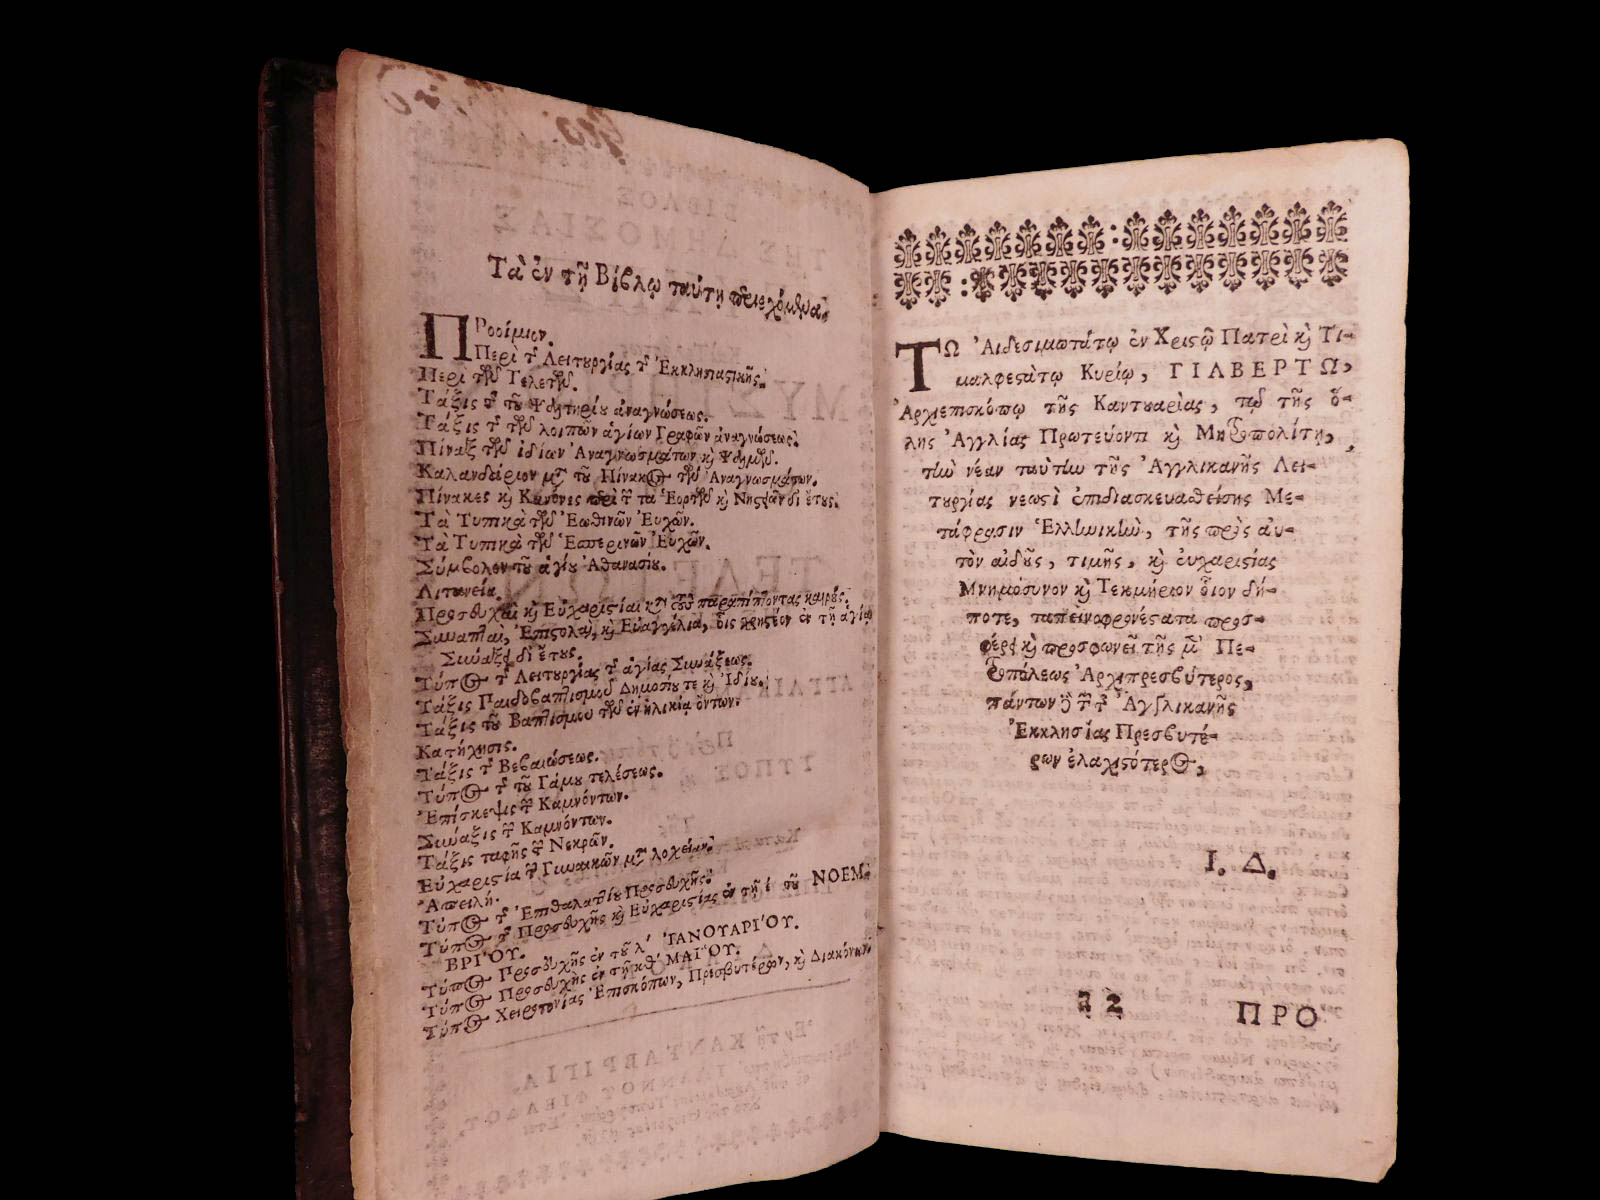 Τὰ ἐν τῇ Βίβλῳ ταύτῃ περιεχόμενα.
ΠΡοοίμιον.
Περὶ τ̃ Λειτουργίας τ̃ Ἐκκλησιαστικῆς.
Περὶ τῶν Τελετῶν.
Τάξις τ̃ τοῦ Ψαλτηρίου ἀναγνώσεως.
Τάξις τ̃ τῶν λοιπῶν ἁγίων Γραφῶν ἀναγνώσεως.
Πίναξ τῶν ἰδίων Ἀναγνωσμάτων κ̀ Ψαλμῶν.
Καλανδάριον μτ̀ τοῦ Πίνακος τῶν Ἀναγνωσμάτων.
Πίνακες κ̀ Κανόνες περὶ τ̃ τὰ Ἑορτῶν κ̀ Νηστειῶν δι' ἔτους.
Τὰ Τυπικὰ τῶν Ἑωθινῶν Εὐχῶν.
Τὰ Τυπικὰ τῶν Ἑσπερινῶν Εὐχῶν.
Σύμβολον τοῦ ἁγίου Ἀθανασίου.
Λιτανεία.
Προσευχαὶ κ̀ Εὐχαριστίαι κτ̀ τοὺς παραπίπτοντας καιρούς.
Συναπταὶ, Ἐπιστολαὶ, κ̀ Εὐαγγέλια, οἷς χρηστέον ἐν τῇ ἁγίᾳ
Συνάξει δι' ἔτους.
Τύπος τ̃ Λειτουργίας τ̃ ἁγίας Συνάξεως.
Τάξις Παιδοβαπτισμοῦ Δημοσίου τε κ̀ Ἰδίου.
Τάξις τοῦ Βαπτισμοῦ τῶν ἐν ἡλικίᾳ ὄντων.
Κατήχησις.
Τάξις τ̃ Βεβαιώσεως.
Τύπος τ̃ τοῦ Γάμου τελέσεως.
Ἐπίσκεψις τ̃ Καμνόντων.
Σύναξις τ̃ Καμνόντων.
Τάξις ταφῆς τ̃ Νεκρῶν.
Εὐχαριστία τ̃ Γυναικῶν μτ̀ λοχείαν.
Ἀπειλή.
Τύπος τ̃ Ἐπιθαλαττίου Προσευχῆς.
Τύπος τ̃ Προσευχῆς κ̀ Εὐχαριστίας ἐν τῇ έ τοῦ ΝΟΕΜ-
ΒΡΙ'ΟΥ.
Τύπος Προσευχῆς ἐν τοῦ λ' ἸΑΝΟΥΑΡΙ'ΟΥ.
Τύπος Προσευχῆς ἐν τῇ κθ' ΜΑΙ'ΟΥ.
Τύπος Χειροτονίας Ἐπισκόπων, Πρεσβυτέρων, κ̀ Διακόνων.
ΤΩ Αἰδεσιμωτάτῳ ἐν Χριστῷ Πατρὶ κ̀ Τι-
μαλφεστάτῳ Κυρίῳ, ΓΙΛΒΕΡΤΩ,
Ἀρχιεπισκόπῳ τῆς Καντουαρίας, τῷ τῆς ὅ-
λης Ἀγγλίας Πρωτεύοντι κ̀ Μητροπολίτῃ,
τὴν νέαν ταύτην τῆς Ἀγγλικανῆς Λει-
τουργίας νεωστὶ ἐπιδιασκευασθείσης Με-
τάφρασιν Ἑλληνικὴν, τῆς πρὸς αὐ-
τὸν αἰδοῦς, τιμῆς, κ̀ εὐχαριστίας
Μνημόσυνον κ̀ Τεκμήριον οἷον δή-
ποτε, ταπεινοφρονέστατα προσ-
φέρει κ̀ προσφωνεῖ τῆς μ̀ Πε-
τροπόλεως Ἀρχιπρεσβύτερος,
πάντων δὲ τ̃ τ̃ Ἀγγλικανῆς
Ἐκκλησίας Πρεσβυτέ-
ρων ἐλαχιστότερος,
Ι. Δ.
a 2
ΠΡΟ